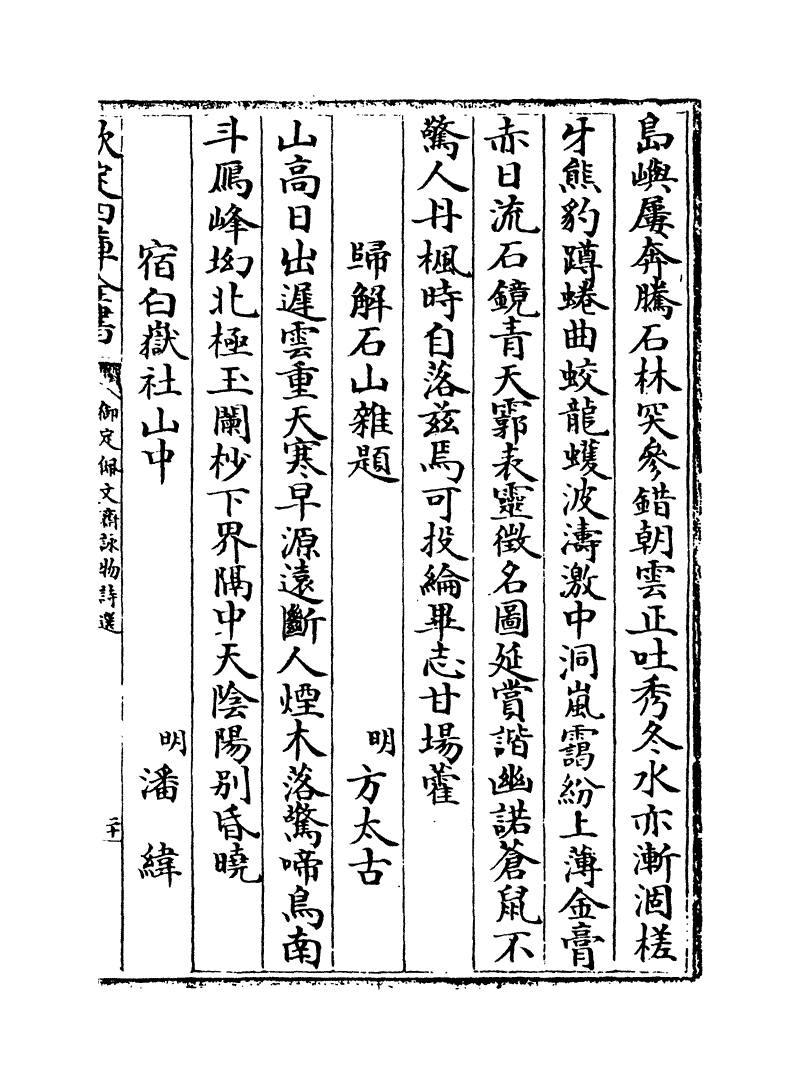 島嶼屢奔騰石林突參錯朝雲正吐秀冬水亦漸涸槎
牙熊豹蹲蜷曲蛟龍蠖波濤激中洞嵐靄紛上薄金膏
赤日流石鏡青天霩表靈徵名圖延賞諧幽諾蒼鼠不
驚人丹楓時自落茲焉可投綸畢志甘場藿
歸解石山雜題
明方太古
山高日出遲雲重天寒早源遠斷人煙木落驚啼鳥南
斗鴈峰坳北極玉闌杪下界隔中天陰陽別昏曉
宿白嶽社山中
明潘緯
欽定四庫全書
御定佩文齋詠物詩選
二十一